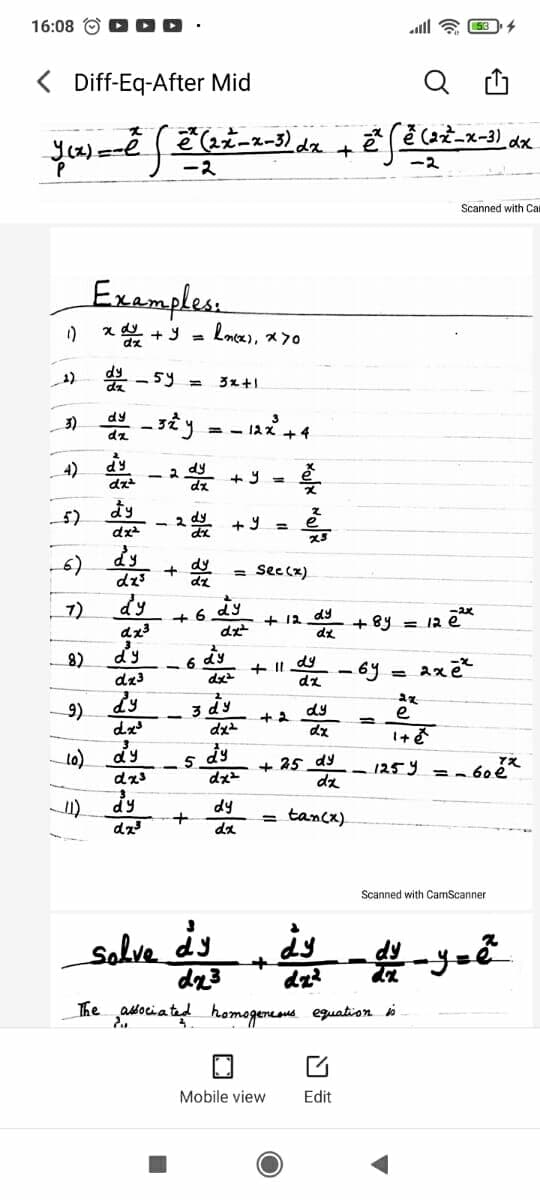 16:08 53
Diff-Eq-After Mid
y(x)p = -e^x ∫ e^-x (2x^2-x-3)/-2 dx + e^-x ∫ e^x (2x^2-x-3)/-2 dx
Scanned with Ca
Examples:
1) x dy/dx + y = ln(x), x>0
2) dy/dx - 5y = 3x+1
3) dy/dx - 3x^2 y = -12x^3 + 4
4) d^2y/dx^2 - 2 dy/dx + y = e^x/x
5) d^2y/dx^2 - 2 dy/dx + y = e^x/x^5
6) d^3y/dx^3 + dy/dx = sec(x)
7) d^3y/dx^3 + 6 d^2y/dx^2 + 12 dy/dx + 8y = 12 e^-2x
8) d^3y/dx^3 - 6 d^2y/dx^2 + 11 dy/dx - 6y = 2x e^-x
9) d^3y/dx^3 - 3 d^2y/dx^2 + 2 dy/dx = e^2x/1+e^x
10) d^3y/dx^3 - 5 d^2y/dx^2 + 25 dy/dx - 125 y = -60 e^7x
11) d^3y/dx^3 + dy/dx = tan(x)
Scanned with CamScanner
Solve d^3y/dx^3 + d^2y/dx^2 - dy/dx - y = e^x
The associated homogeneous equation is
Mobile view Edit